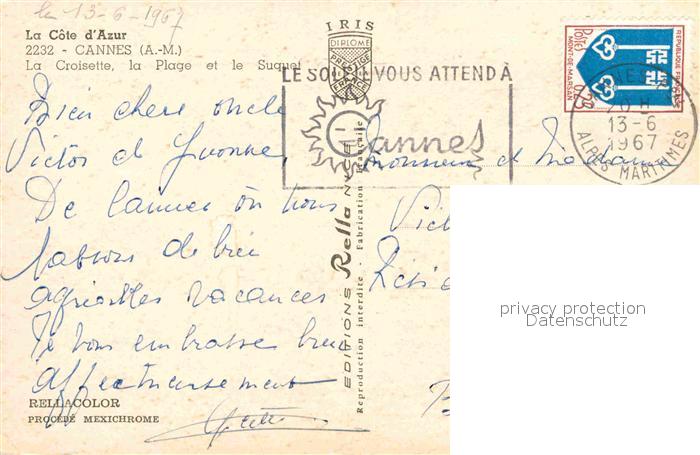 le 13-6-1967
La Côte d'Azur
2232 - CANNES (A.-M.)
La Croisette, la Plage et le Suquet
IRIS
DIPLOME
PRESTIGE
FRANCE
LE SOLEIL VOUS ATTEND À
Cannes
POSTES
REPUBLIQUE FRANÇAISE
MONT-DE-MARSAN
0,25
20 H
13-6
1967
ALPES MARITIMES
Bien chers oncle
Victor et Yvonne,
De Cannes où nous
passons de bien
agréables vacances
Je vous embrasse bien
affectueusement
Monsieur et Madame
Vict
Rési
EDITIONS Rella NICE
Reproduction interdite - Fabrication Française
RELLACOLOR
PROCÉDÉ MEXICHROME
privacy protection
Datenschutz